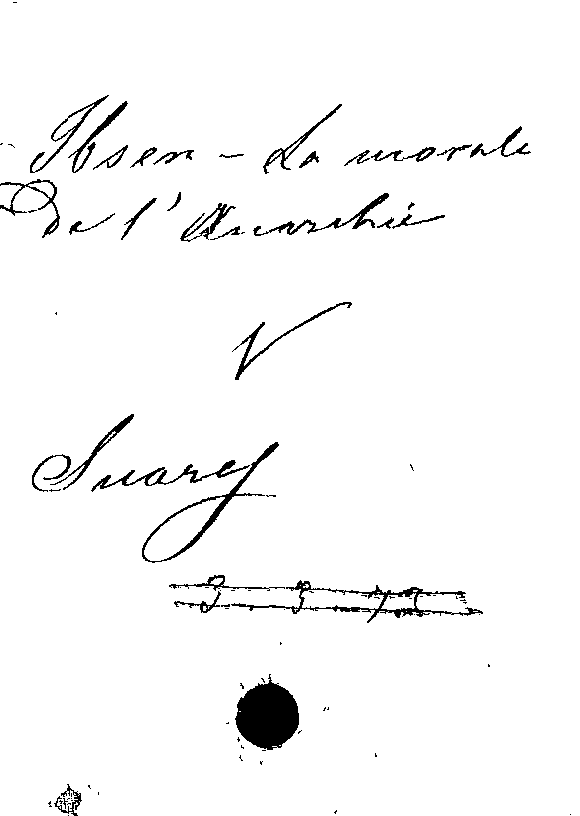 Ibsen - La morale
de l'Anarchie
V
Suares